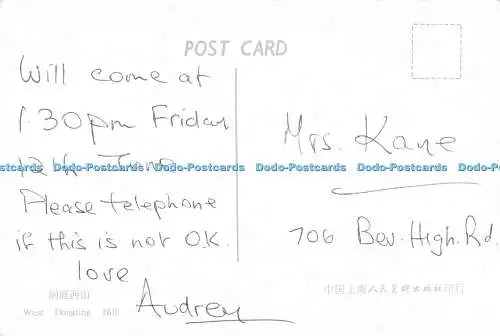 POST CARD
Will come at
1.30pm Friday
12th June
Please telephone
if this is not O.K.
love
Audrey
洞庭西山
West Dongting Hill
Mrs. Kane
706 Bev. High. Rd.
中国上海人民美术出版社印行
Dodo-Postcards Dodo-Postcards Dodo-Postcards Dodo-Postcards Dodo-Postcards